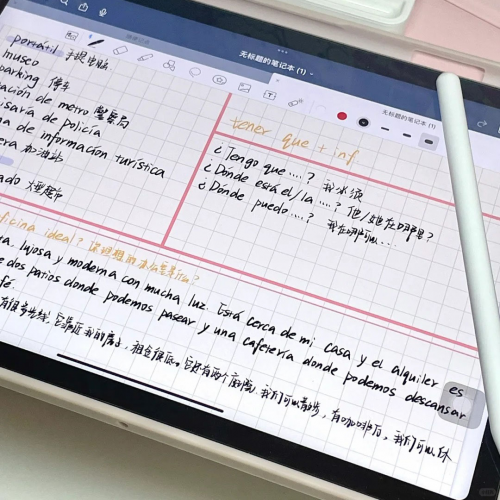 无标题的笔记本 (1)
无标题的笔记本 (1)
portátil 手提电脑
museo
parking 停车
ación de metro 警察局
isaría de policía
na de información turística
era 加油站
ado 大型超市
tener que + inf
¿Tengo que....? 我必须
¿Dónde está el/la ....? 他/她在哪里?
¿Dónde puedo....? 我在哪可以...
ficina ideal?
ra, lujosa y moderna con mucha luz. Está cerca de mi casa y el alquiler es
e dos patios donde podemos pasear y una cafetería donde podemos descansar
afé.
有很多光线, 它靠近我的房子, 租金很低。它还有两个庭院, 我们可以散步, 有咖啡厅, 我们可以休